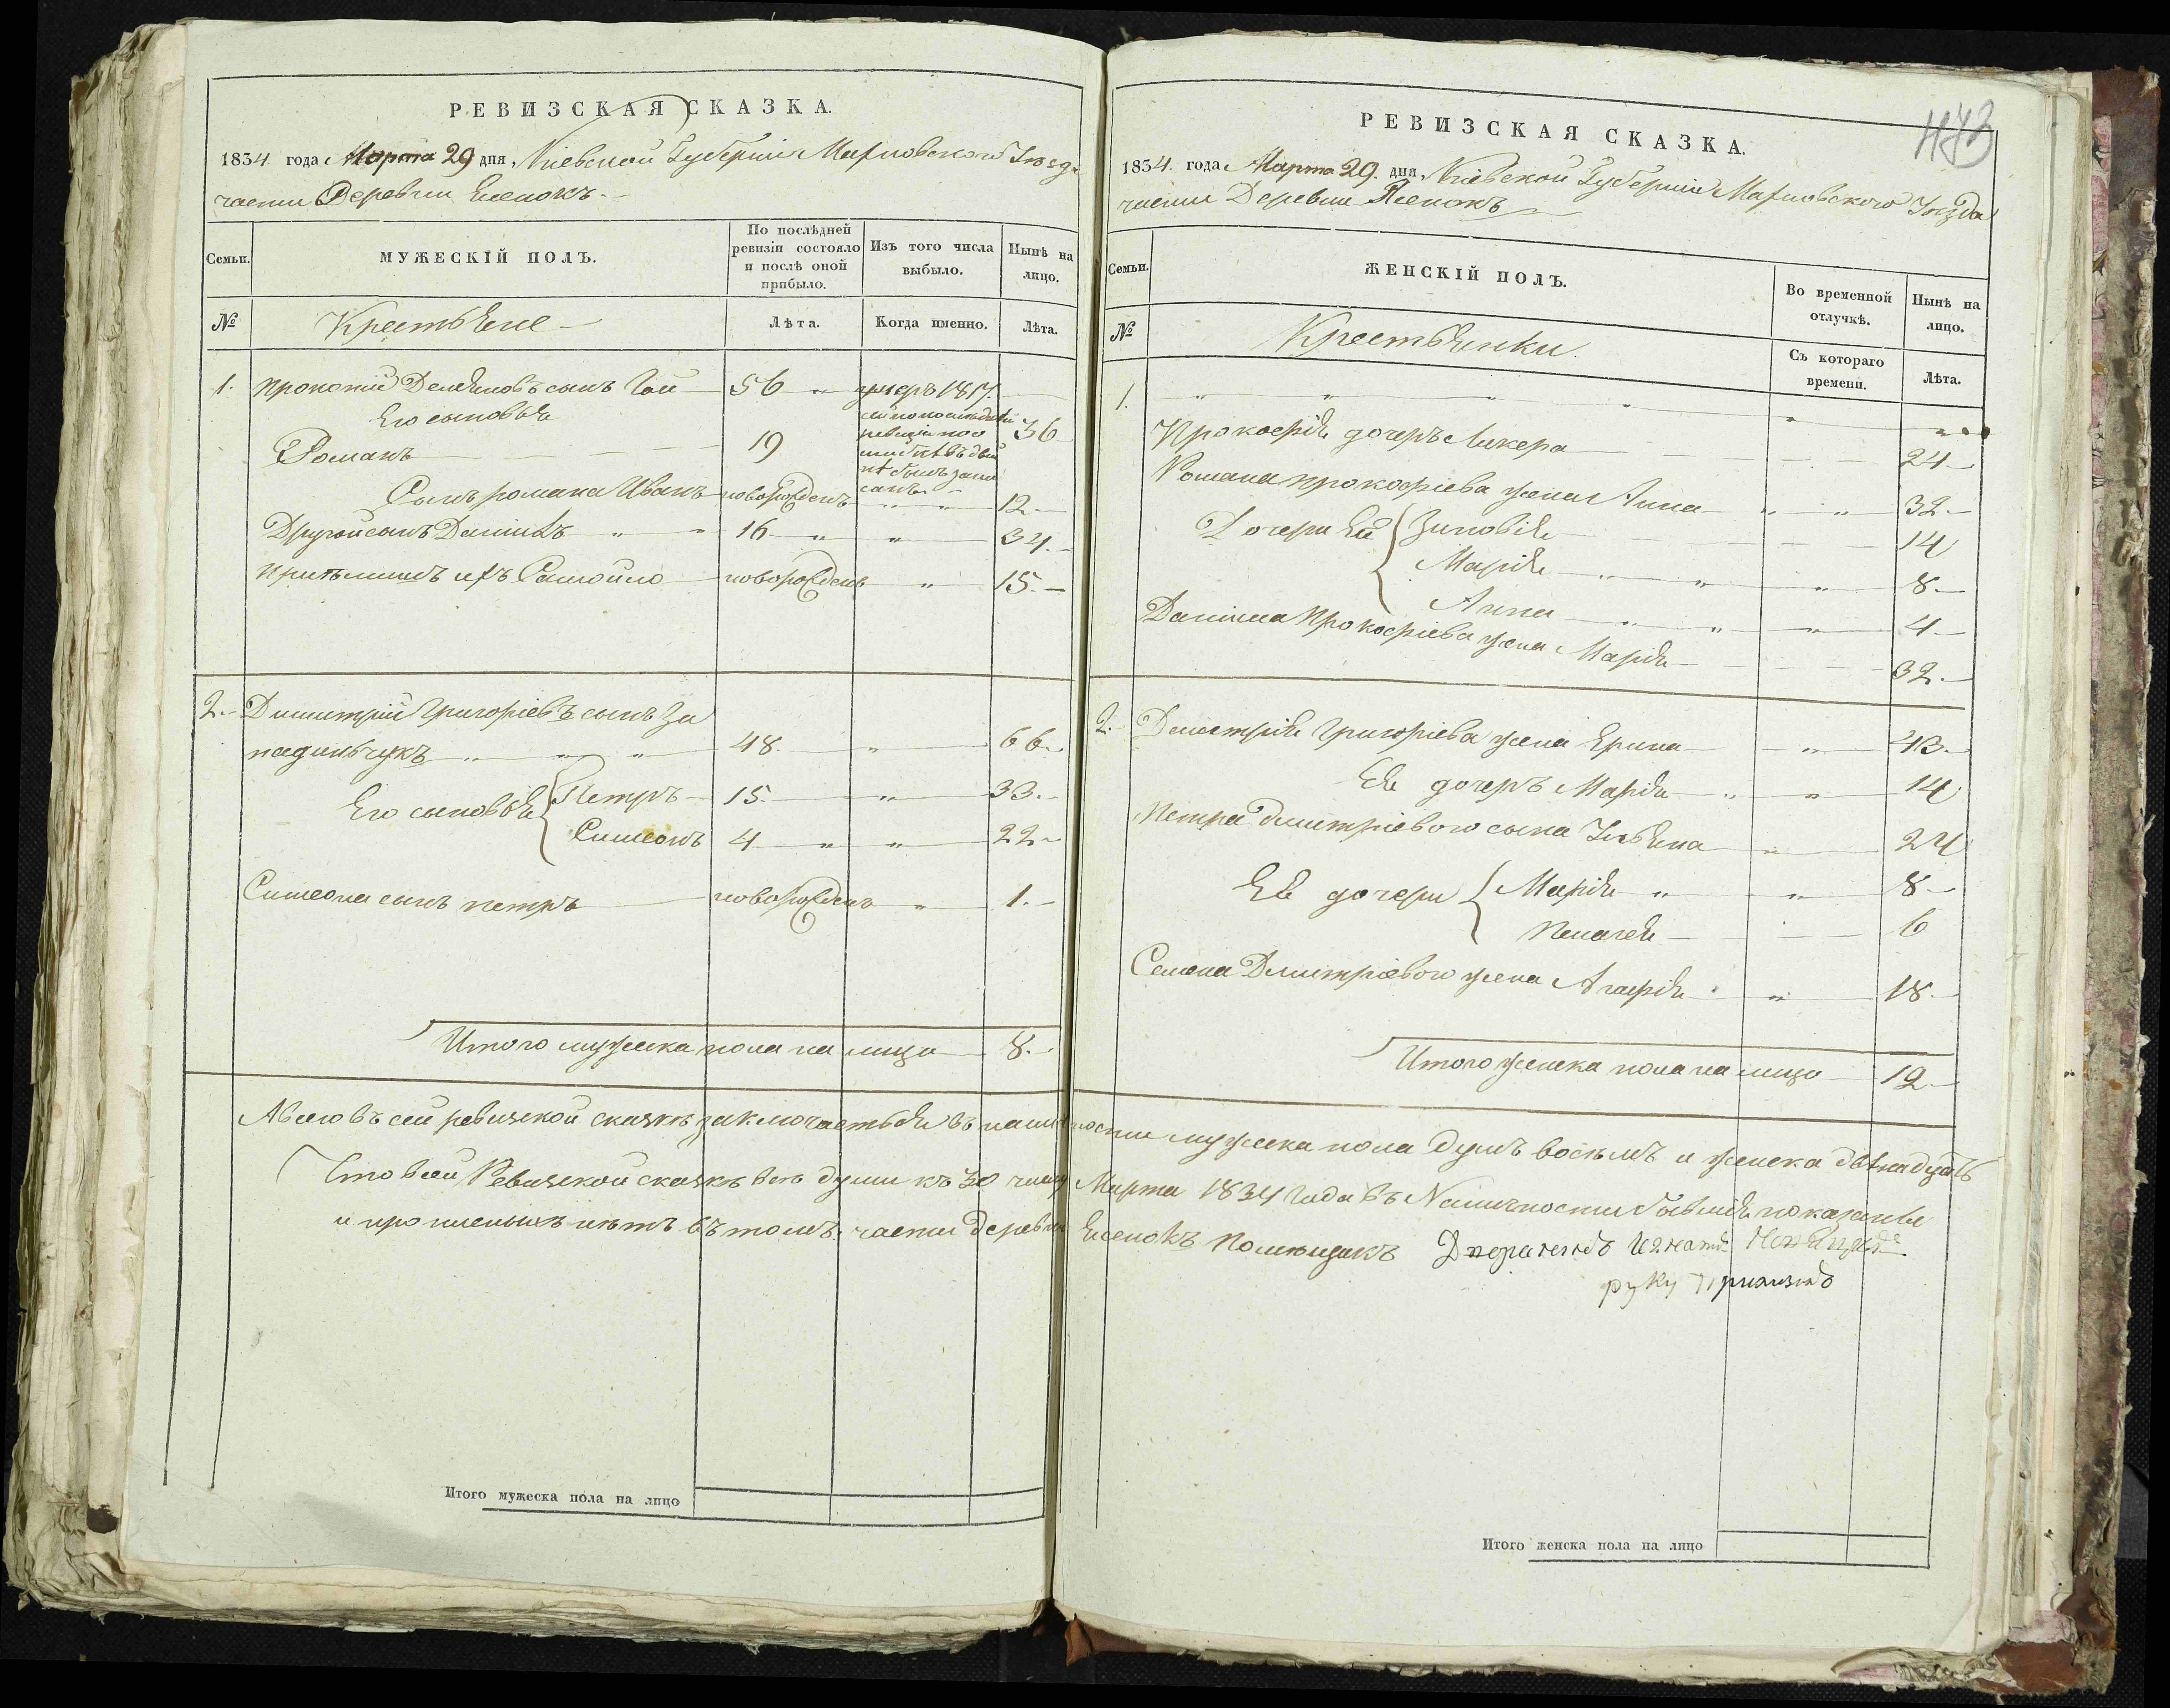 РЕВИЗСКАЯ СКАЗКА.
1834 года Марта 29 дня, Кіевской Губерніи Махновского Уезда
части Деревни
Семьи.
МУЖЕСКІЙ ПОЛЪ.
По послѣдней ревизіи состояло и послѣ оной прибыло.
Изъ того числа выбыло.
Нынѣ на лицо.
№
Крестьяне
Лѣта.
Когда именно.
Лѣта.
1. сынъ 56 умеръ 1817.
Его сыновья
Романъ 19 36
Сынъ романа Иванъ новорожденъ 12.
Другой сынъ Данило 16 34.
новорожденъ 15.
2. Димитрий Григоріевъ сынъ За
падиньчукъ 48. 66.
Его сыновья Петръ 15. 33.
Симеонъ 4 22
Симеона сынъ петръ новорожденъ 1.
Итого мужеска пола на лицо 8.
Итого мужеска пола на лицо
473
РЕВИЗСКАЯ СКАЗКА.
1834 года Марта 29. дня, Кіевской Губерніи Махновского Уезда
части Деревни
Семьи.
ЖЕНСКІЙ ПОЛЪ.
Во временной отлучкѣ.
Нынѣ на лицо.
№
Крестьянки.
Съ котораго времени.
Лѣта.
1.
Прокофія дочеръ 24
Романа прокофіева жена Анна 32.
Дочери Ей Зиновія 14
Марія 8.
Анна 4
Данила Прокофіева жена Марія 32.
2. Дмитрія Григоріева жена Ерина 43.
Ея дочеръ Марія 14
Петра дмитріевого сына 24
Ея дочери Марія 8
Пелагея 6
Семена Дмитріевого жена Агафія 18
Итого женска пола на лицо 12
Авсего въ сей ревизской сказкѣ заключаетьси въ наличности мужеска пола душъ восемъ и женска двѣнадцать
Что всей Ревизской сказкѣ всѣ души къ 30 числу Марта 1834 Года въ Наличности бывшія показаны
и прописныхъ нѣтъ въ томъ части деревни помѣщикъ
руку
Итого женска пола на лицо